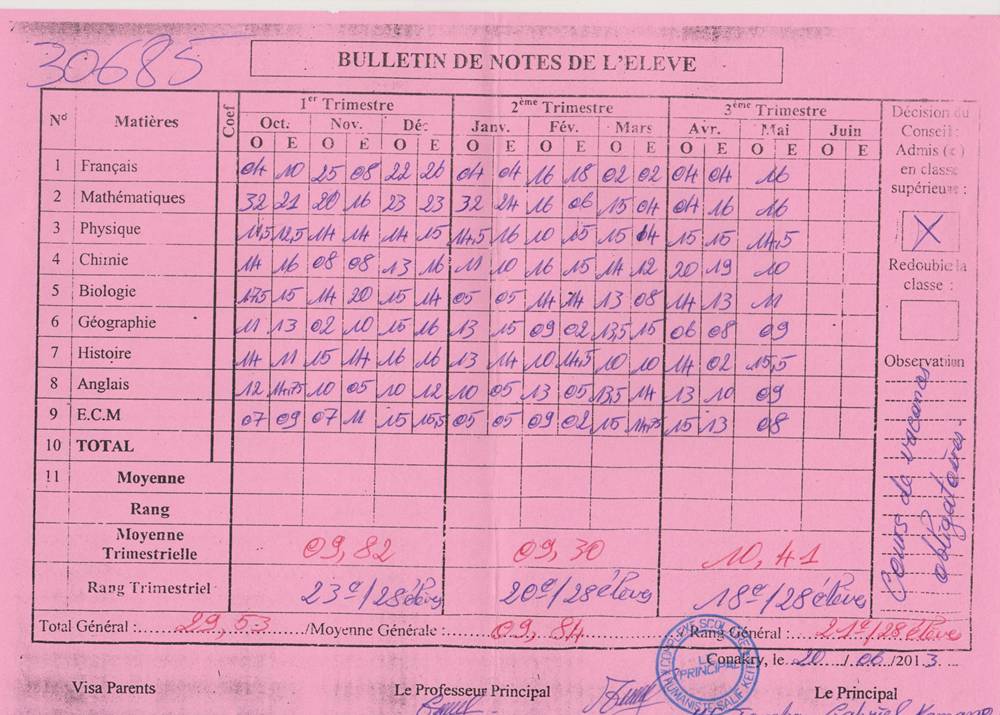 30685
BULLETIN DE NOTES DE L'ELEVE
N° Matières Coef 1er Trimestre 2ème Trimestre 3ème Trimestre
Oct. Nov. Déc Janv. Fév. Mars Avr. Mai Juin
O E O E O E O E O E O E O E O E O E
1 Français 04 10 25 08 22 26 04 04 16 18 02 02 04 04 16
2 Mathématiques 32 21 20 16 23 23 32 24 16 06 15 04 04 16 16
3 Physique 11,5 12,5 14 14 14 15 14,5 16 10 15 15 14 15 15 14,5
4 Chimie 14 16 08 08 13 16 11 10 16 15 14 12 20 19 10
5 Biologie 17,5 15 14 20 15 14 05 05 14 14 13 08 14 13 11
6 Géographie 11 13 02 10 15 16 13 15 09 02 13,5 15 06 08 09
7 Histoire 14 11 15 14 16 16 13 14 10 14,5 10 10 14 02 15,5
8 Anglais 12 14,75 10 05 10 12 10 05 13 05 13,5 14 13 10 09
9 E.C.M 07 09 07 11 15 15,5 05 05 09 02 15 14,75 15 13 08
10 TOTAL
11 Moyenne
Rang
Moyenne
Trimestrielle 09,82 09,30 10,41
Rang Trimestriel 23e/28 élèves 20e/28 élèves 18e/28 élèves
Décision du
Conseil :
Admis (e)
en classe
supérieure :
X
Redouble la
classe :
Observation
Cours de vacances
obligatoires.
Total Général : 29,53 /Moyenne Générale : 09,84 /Rang Général : 21e/28 élève
Conakry, le 20 / 06 /2013
COMPLEXE SCOLAIRE
LE
PRINCIPAL
HUMANISTE SALIF KEITA
Visa Parents Le Professeur Principal Le Principal
Gabriel